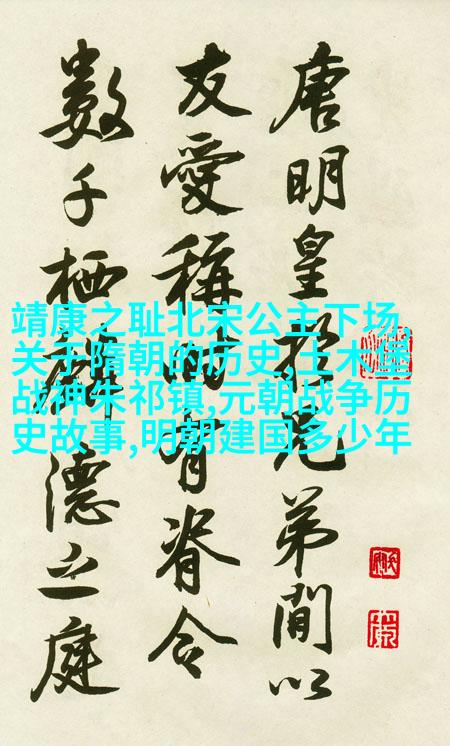 唐明皇於兄弟間以
友愛稱時有脊令
數千栖麟德之庭
靖康之耻北宋公主下场,
关于隋朝的历史,土木堡
战神朱祁镇,元朝战争历
史故事,明朝建国多少年